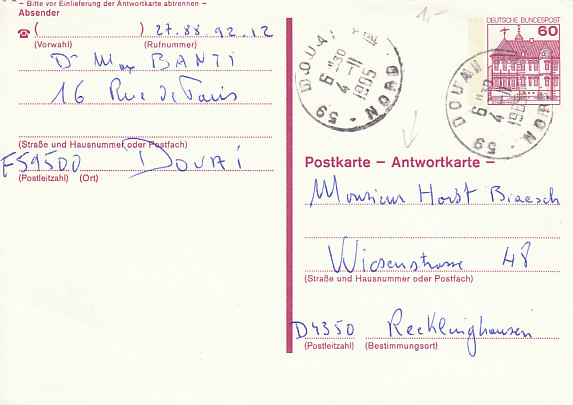 – Bitte vor Einlieferung der Antwortkarte abtrennen –
Absender
( ) 27.88.92.12
(Vorwahl) (Rufnummer)
Dr Max BANTI
16 Rue de Paris
(Straße und Hausnummer oder Postfach)
F59500 DOUAI
(Postleitzahl) (Ort)
1,-
DEUTSCHE BUNDESPOST
60
DOUAI
6 H30
4 -11
1985
59 - NORD
DOUAI
6 H30
4
198
59 - NORD
Postkarte – Antwortkarte –
Monsieur Horst Biaesch
Wiesenstrasse 48
(Straße und Hausnummer oder Postfach)
D4350 Recklinghausen
(Postleitzahl) (Bestimmungsort)